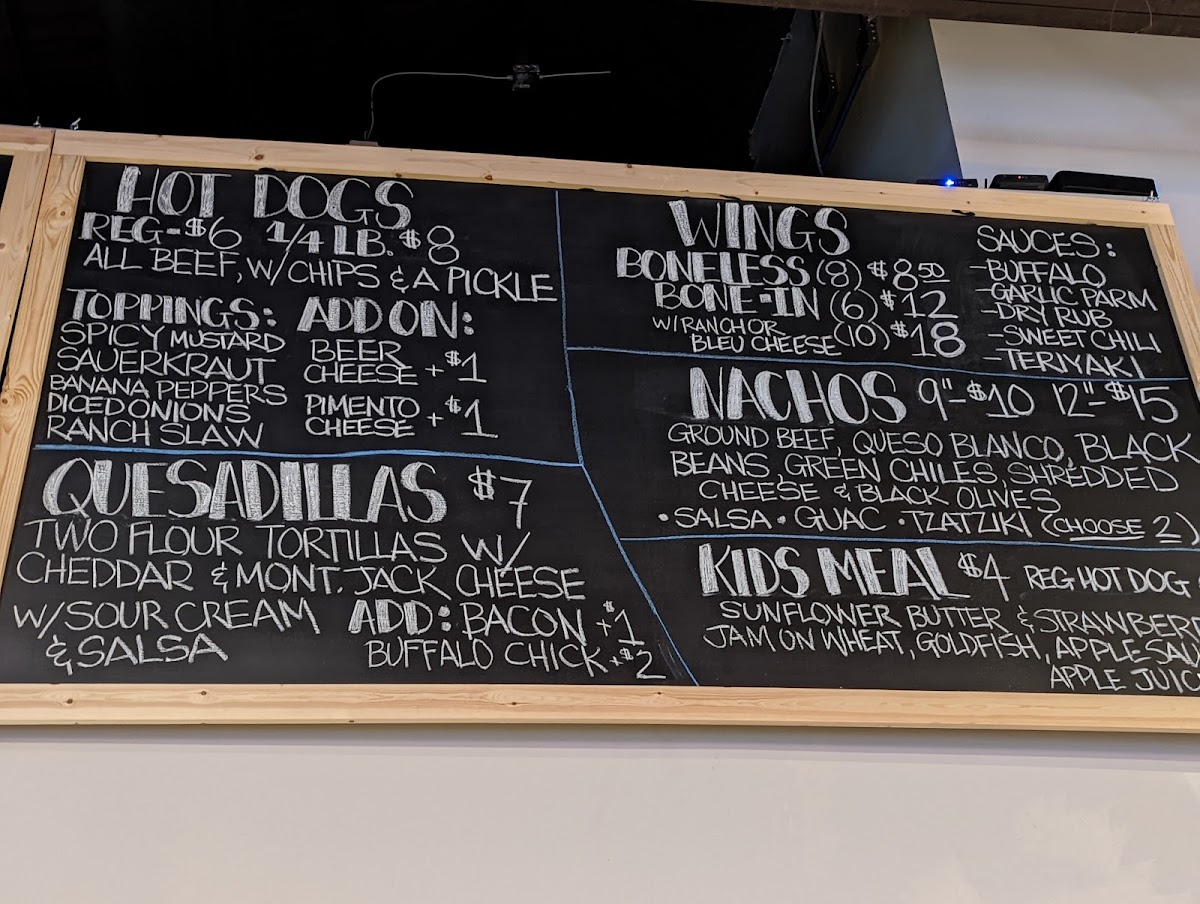 HOT DOGS
REG-$6 1/4 LB. $8
ALL BEEF, W/CHIPS & A PICKLE
TOPPINGS:
SPICY MUSTARD
SAUERKRAUT
BANANA PEPPERS
DICED ONIONS
RANCH SLAW
ADD ON:
BEER
CHEESE +$1
PIMENTO
CHEESE +$1
QUESADILLAS $7
TWO FLOUR TORTILLAS W/
CHEDDAR & MONT. JACK CHEESE
W/SOUR CREAM
& SALSA
ADD: BACON +$1
BUFFALO CHICK +$2
WINGS
BONELESS (8) $8.50
BONE-IN (6) $12
W/RANCH OR
BLEU CHEESE (10) $18
SAUCES:
-BUFFALO
-GARLIC PARM
-DRY RUB
-SWEET CHILI
-TERIYAKI
NACHOS 9"-$10 12"-$15
GROUND BEEF, QUESO BLANCO, BLACK
BEANS, GREEN CHILES, SHREDDED
CHEESE & BLACK OLIVES
•SALSA • GUAC •TZATZIKI (CHOOSE 2)
KIDS MEAL $4 REG HOT DOG
SUNFLOWER BUTTER & STRAWBERR
JAM ON WHEAT, GOLDFISH, APPLESAU
APPLE JUIC